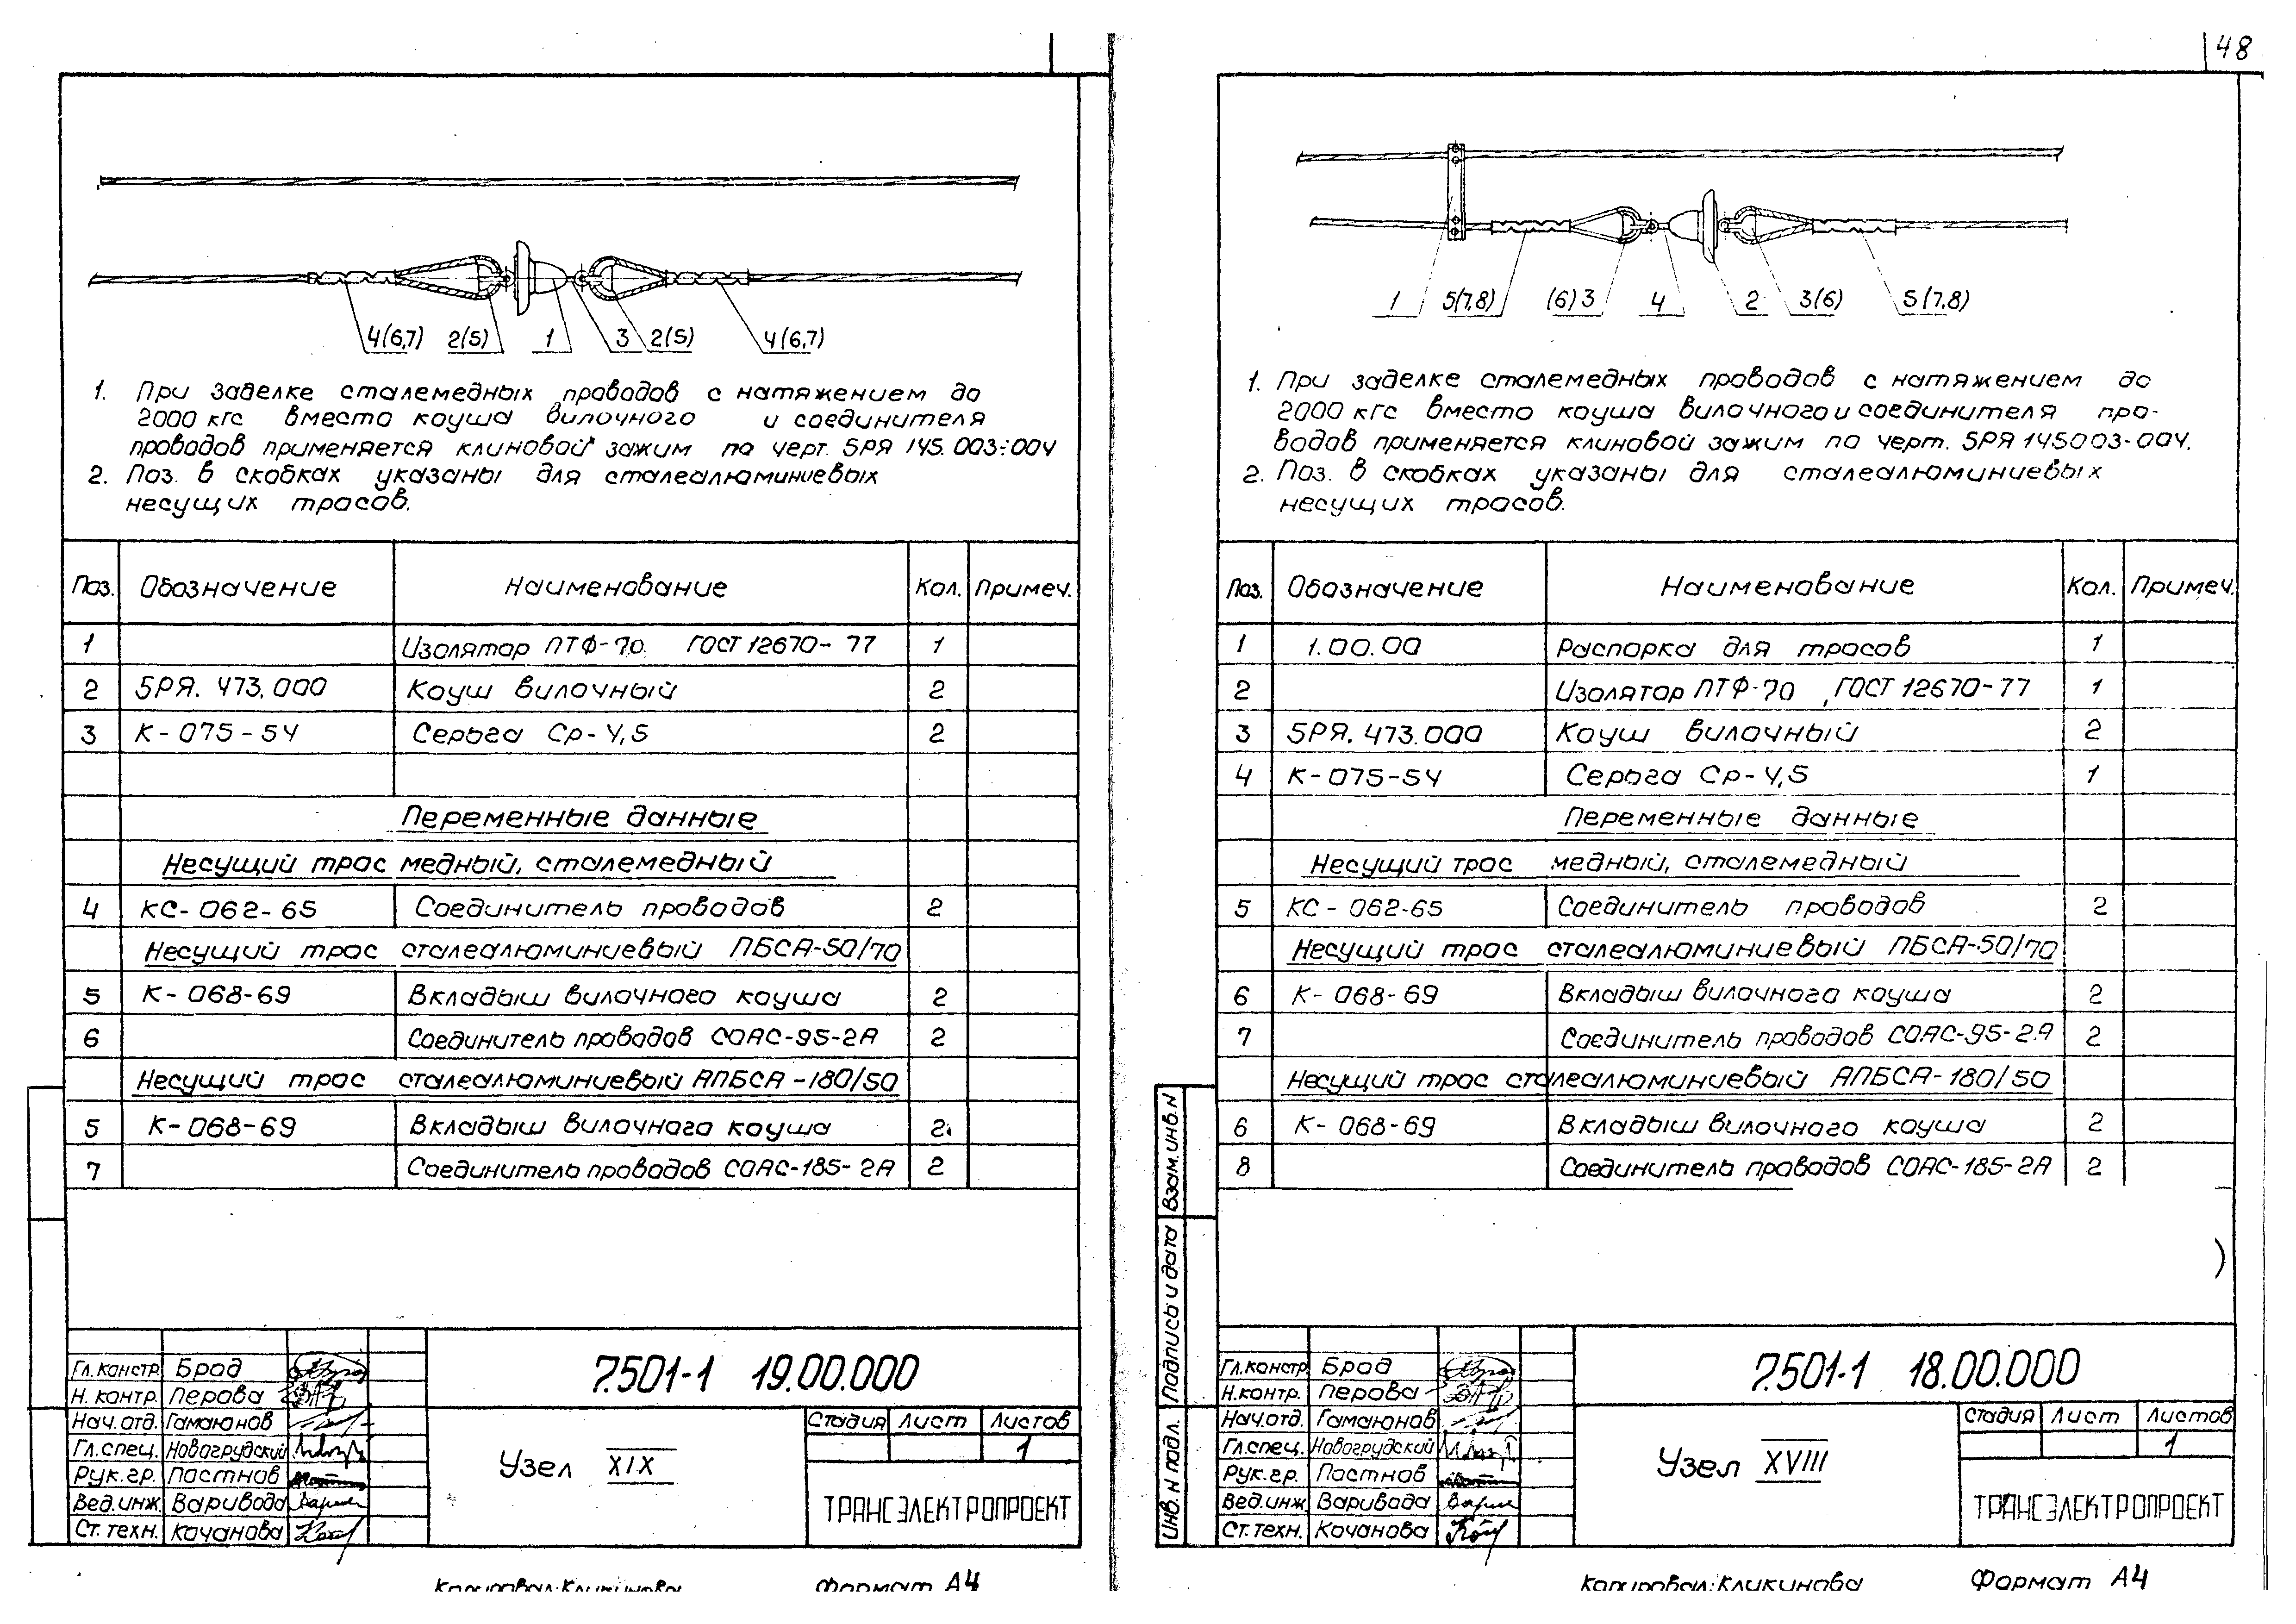 4(6,7) 2(5) 1 3 2(5) 4(6,7)
1. При заделке сталемедных проводов с натяжением до
2000 кгс вместо коуша вилочного и соединителя
проводов применяется клиновой зажим по черт. 5РЯ 145.003÷004
2. Поз. в скобках указаны для сталеалюминиевых
несущих тросов.
Поз. Обозначение Наименование Кол. Примеч.
1 Изолятор ПТФ-70 ГОСТ 12670-77 1
2 5РЯ.473.000 Коуш вилочный 2
3 К-075-54 Серьга Ср-4,5 2
Переменные данные
Несущий трос медный, сталемедный
4 КС-062-65 Соединитель проводов 2
Несущий трос сталеалюминиевый ПБСА-50/70
5 К-068-69 Вкладыш вилочного коуша 2
6 Соединитель проводов СОАС-95-2А 2
Несущий трос сталеалюминиевый АПБСА-180/50
5 К-068-69 Вкладыш вилочного коуша 2
7 Соединитель проводов СОАС-185-2А 2
Гл.констр. Брод
Н.контр. Перова
Нач.отд. Гамаюнов
Гл.спец. Новогрудский
Рук.гр. Постнов
Вед.инж. Варивода
Ст.техн. Кочанова
7.501-1 19.00.000
Узел XIX
Стадия Лист Листов
1
ТРАНСЭЛЕКТРОПРОЕКТ
Копировал: Кликинова Формат А4
48
1 5(7,8) (6)3 4 2 3(6) 5(7,8)
1. При заделке сталемедных проводов с натяжением до
2000 кгс вместо коуша вилочного и соединителя про-
водов применяется клиновой зажим по черт. 5РЯ 145003-004.
2. Поз. в скобках указаны для сталеалюминиевых
несущих тросов.
Поз. Обозначение Наименование Кол. Примеч.
1 1.00.00 Распорка для тросов 1
2 Изолятор ПТФ-70 ГОСТ 12670-77 1
3 5РЯ.473.000 Коуш вилочный 2
4 К-075-54 Серьга Ср-4,5 1
Переменные данные
Несущий трос медный, сталемедный
5 КС-062-65 Соединитель проводов 2
Несущий трос сталеалюминиевый ПБСА-50/70
6 К-068-69 Вкладыш вилочного коуша 2
7 Соединитель проводов СОАС-95-2А 2
Несущий трос сталеалюминиевый АПБСА-180/50
6 К-068-69 Вкладыш вилочного коуша 2
8 Соединитель проводов СОАС-185-2А 2
Взам.инв.N
Подпись и дата
Инв.N подл.
Гл.констр. Брод
Н.контр. Перова
Нач.отд. Гамаюнов
Гл.спец. Новогрудский
Рук.гр. Постнов
Вед.инж. Варивода
Ст.техн. Кочанова
7.501-1 18.00.000
Узел XVIII
Стадия Лист Листов
1
ТРАНСЭЛЕКТРОПРОЕКТ
Копировал: Кликинова Формат А4